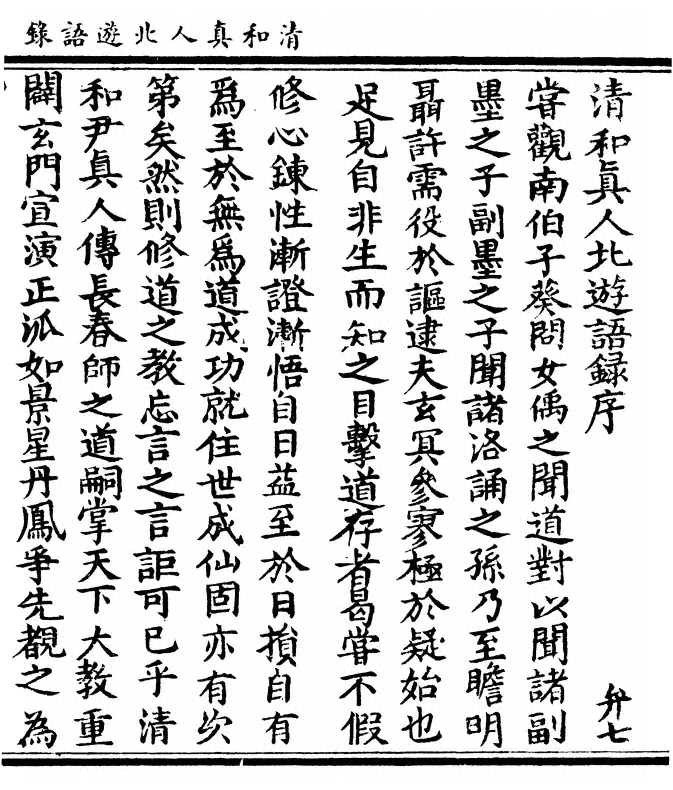 清和真人北遊語錄
清和眞人北遊語録序
弁七
甞觀南伯子葵問女偊之聞道對以聞諸副
墨之子副墨之子聞諸洛誦之孫乃至瞻明
聶許需役於謳逮夫玄冥參寥極於疑始也
足見自非生而知之目擊道存者曷甞不假
修心鍊性漸證漸悟自日益至於日損自有
爲至於無爲道成功就住世成仙固亦有次
第矣然則修道之教忘言之言詎可已乎清
和尹眞人傳長春師之道嗣掌天下大教重
闢玄門宣演正派如景星丹鳳爭先覩之為